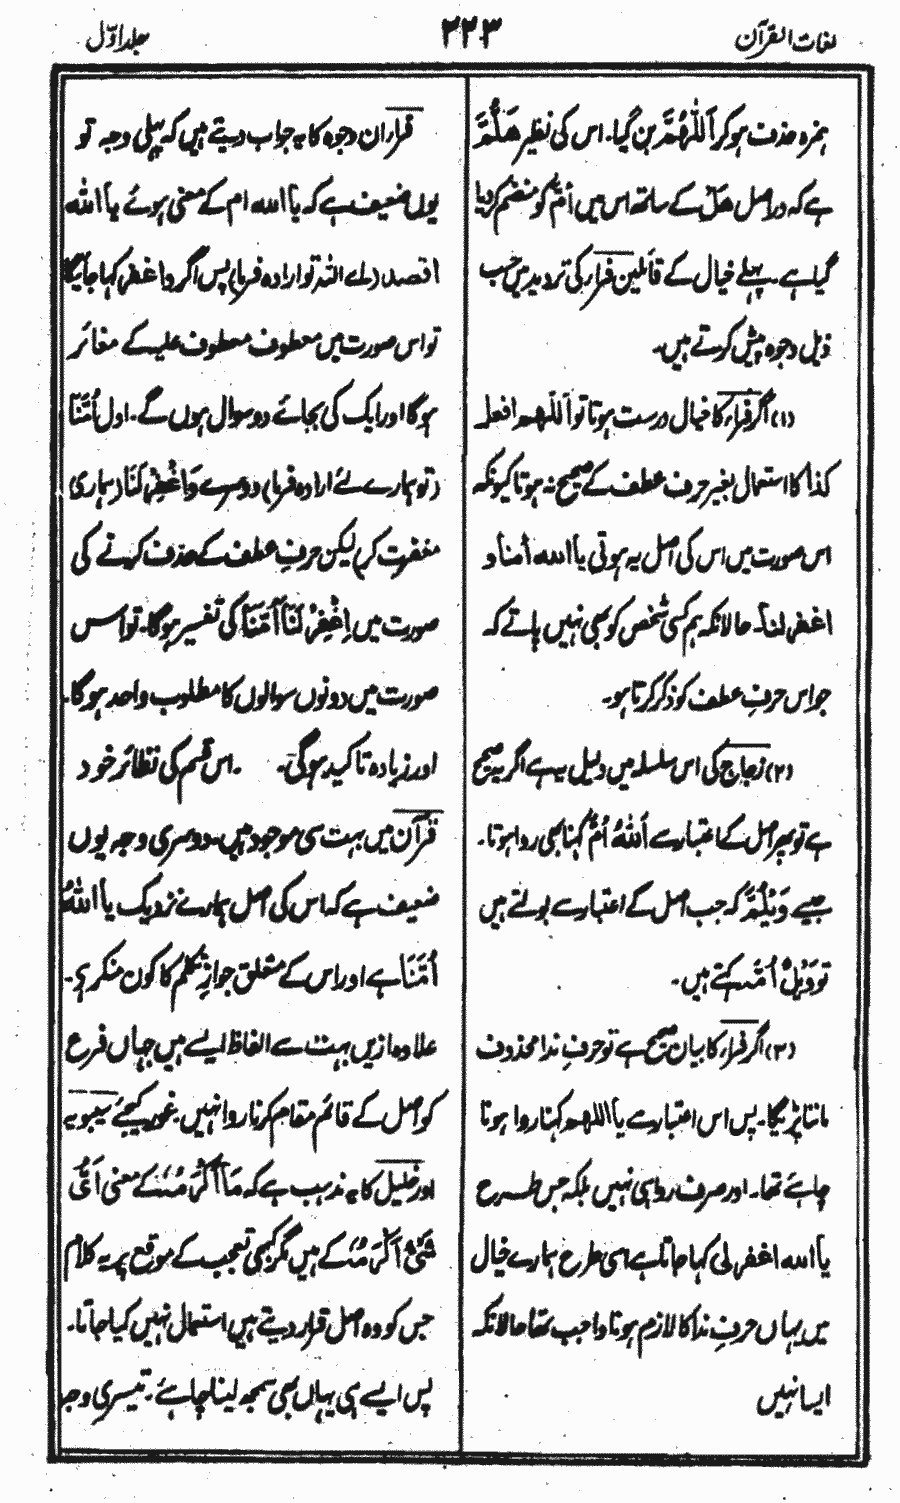 لغات القرآن
۲۲۳
جلد اوّل
ہمزہ حذف ہو کر اَللّٰھُمَّ بن گیا۔ اس کی نظیر ھَلُمَّ
ہے کہ دراصل ھَلْ کے ساتھ اس میں اُمَّ کو منضم کر دیا
گیا ہے۔ پہلے خیال کے قائلین فرار کی تردید میں حسب
ذیل وجوہ پیش کرتے ہیں۔
(۱) اگر فراء کا خیال درست ہوتا تو اَللّٰھم افعل
کذا کا استعمال بغیر حرف عطف کے صحیح نہ ہوتا کیونکہ
اس صورت میں اس کی اصل یہ ہوتی یا اللہ اُمنا و
اغفر لنا۔ حالانکہ ہم کسی شخص کو بھی نہیں پاتے کہ
جو اس حرفِ عطف کو ذکر کرتا ہو۔
(۲) زجاج کی اس سلسلہ میں دلیل یہ ہے اگر یہ صحیح
ہے تو پھر اصل کے اعتبار سے اَللّٰہُ اُمَّ کہنا بھی روا ہوتا۔
جیسے وَیْلُمَّہٗ کہ جب اصل کے اعتبار سے بولتے ہیں
تو وَیْلُ اُمَّہٗ کہتے ہیں۔
(۳) اگر فراء کا بیان صحیح ہے تو حرفِ ندا محذوف
ماننا پڑیگا۔ پس اس اعتبار سے یا اللھم کہنا روا ہونا
چاہئے تھا۔ اور صرف روا ہی نہیں بلکہ جس طرح
یا اللہ اغفر لی کہا جاتا ہے اسی طرح ہمارے خیال
میں یہاں حرفِ ندا کا لازم ہونا واجب تھا حالانکہ
ایسا نہیں
فرار ان وجوہ کا یہ جواب دیتے ہیں کہ پہلی وجہ تو
یوں ضعیف ہے کہ یا اللہ ام کے معنی ہوئے یا اللہ
اقصد (اے اللہ تو ارادہ فرما) پس اگر واغفر کہا جائیگا
تو اس صورت میں معطوف معطوف علیہ کے مغائر
ہو گا اور ایک کی بجائے دو سوال ہوں گے۔ اول اُمَّنَا
(تو ہمارے لئے ارادہ فرما) دوسرے وَاغْفِرْ لَنَا (ہماری
مغفرت کر) لیکن حرفِ عطف کے حذف کرنے کی
صورت میں اِغْفِرْ لَنَا اُمَّنَا کی تفسیر ہو گا۔ تو اس
صورت میں دونوں سوالوں کا مطلوب واحد ہو گا۔
اور زیادہ تاکید ہو گی۔ اس قسم کی نظائر خود
قرآن میں بہت سی موجود ہیں۔ دوسری وجہ یوں
ضعیف ہے کہ اس کی اصل ہمارے نزدیک یا اَللّٰہُ
اُمَّنَا ہے اور اس کے متعلق جوازِ تکلم کا کون منکر ہے۔
علاوہ ازیں بہت سے الفاظ ایسے ہیں جہاں فرع
کو اصل کے قائم مقام کرنا روا نہیں۔ غور کیجئے سیبویہ
اور خلیل کا یہ مذہب ہے کہ مَا اَکْرَمَہٗ کے معنی اَیُّ
شَیْءٍ اَکْرَمَہٗ کے ہیں مگر کبھی تعجب کے موقع پر یہ کلام
جس کو وہ اصل قرار دیتے ہیں استعمال نہیں کیا جاتا۔
پس ایسے ہی یہاں بھی سمجھ لینا چاہئے۔ تیسری وجہ